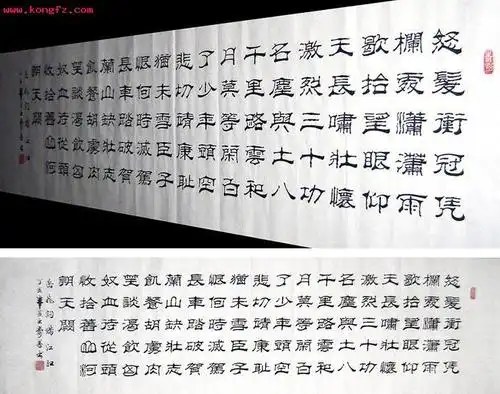 www.kongfz.com
怒髮衝冠凭
欄處瀟瀟雨
歇抬望眼仰
天長嘯壯懷
激烈三十功
名塵與土八
千里路雲和
月莫等閑白
了少年頭空
悲切靖康恥
猶未雪臣子
恨何時滅駕
長車踏破賀
蘭山缺壯志
飢餐胡虜肉
笑談渴飲匈
奴血待從頭
收拾舊山河
朝天闕
岳飛詞滿江紅
怒髮衝冠凭
欄處瀟瀟雨
歇抬望眼仰
天長嘯壯懷
激烈三十功
名塵與土八
千里路雲和
月莫等閑白
了少年頭空
悲切靖康恥
猶未雪臣子
恨何時滅駕
長車踏破賀
蘭山缺壯志
飢餐胡虜肉
笑談渴飲匈
奴血待從頭
收拾舊山河
朝天闕
岳飛詞滿江紅